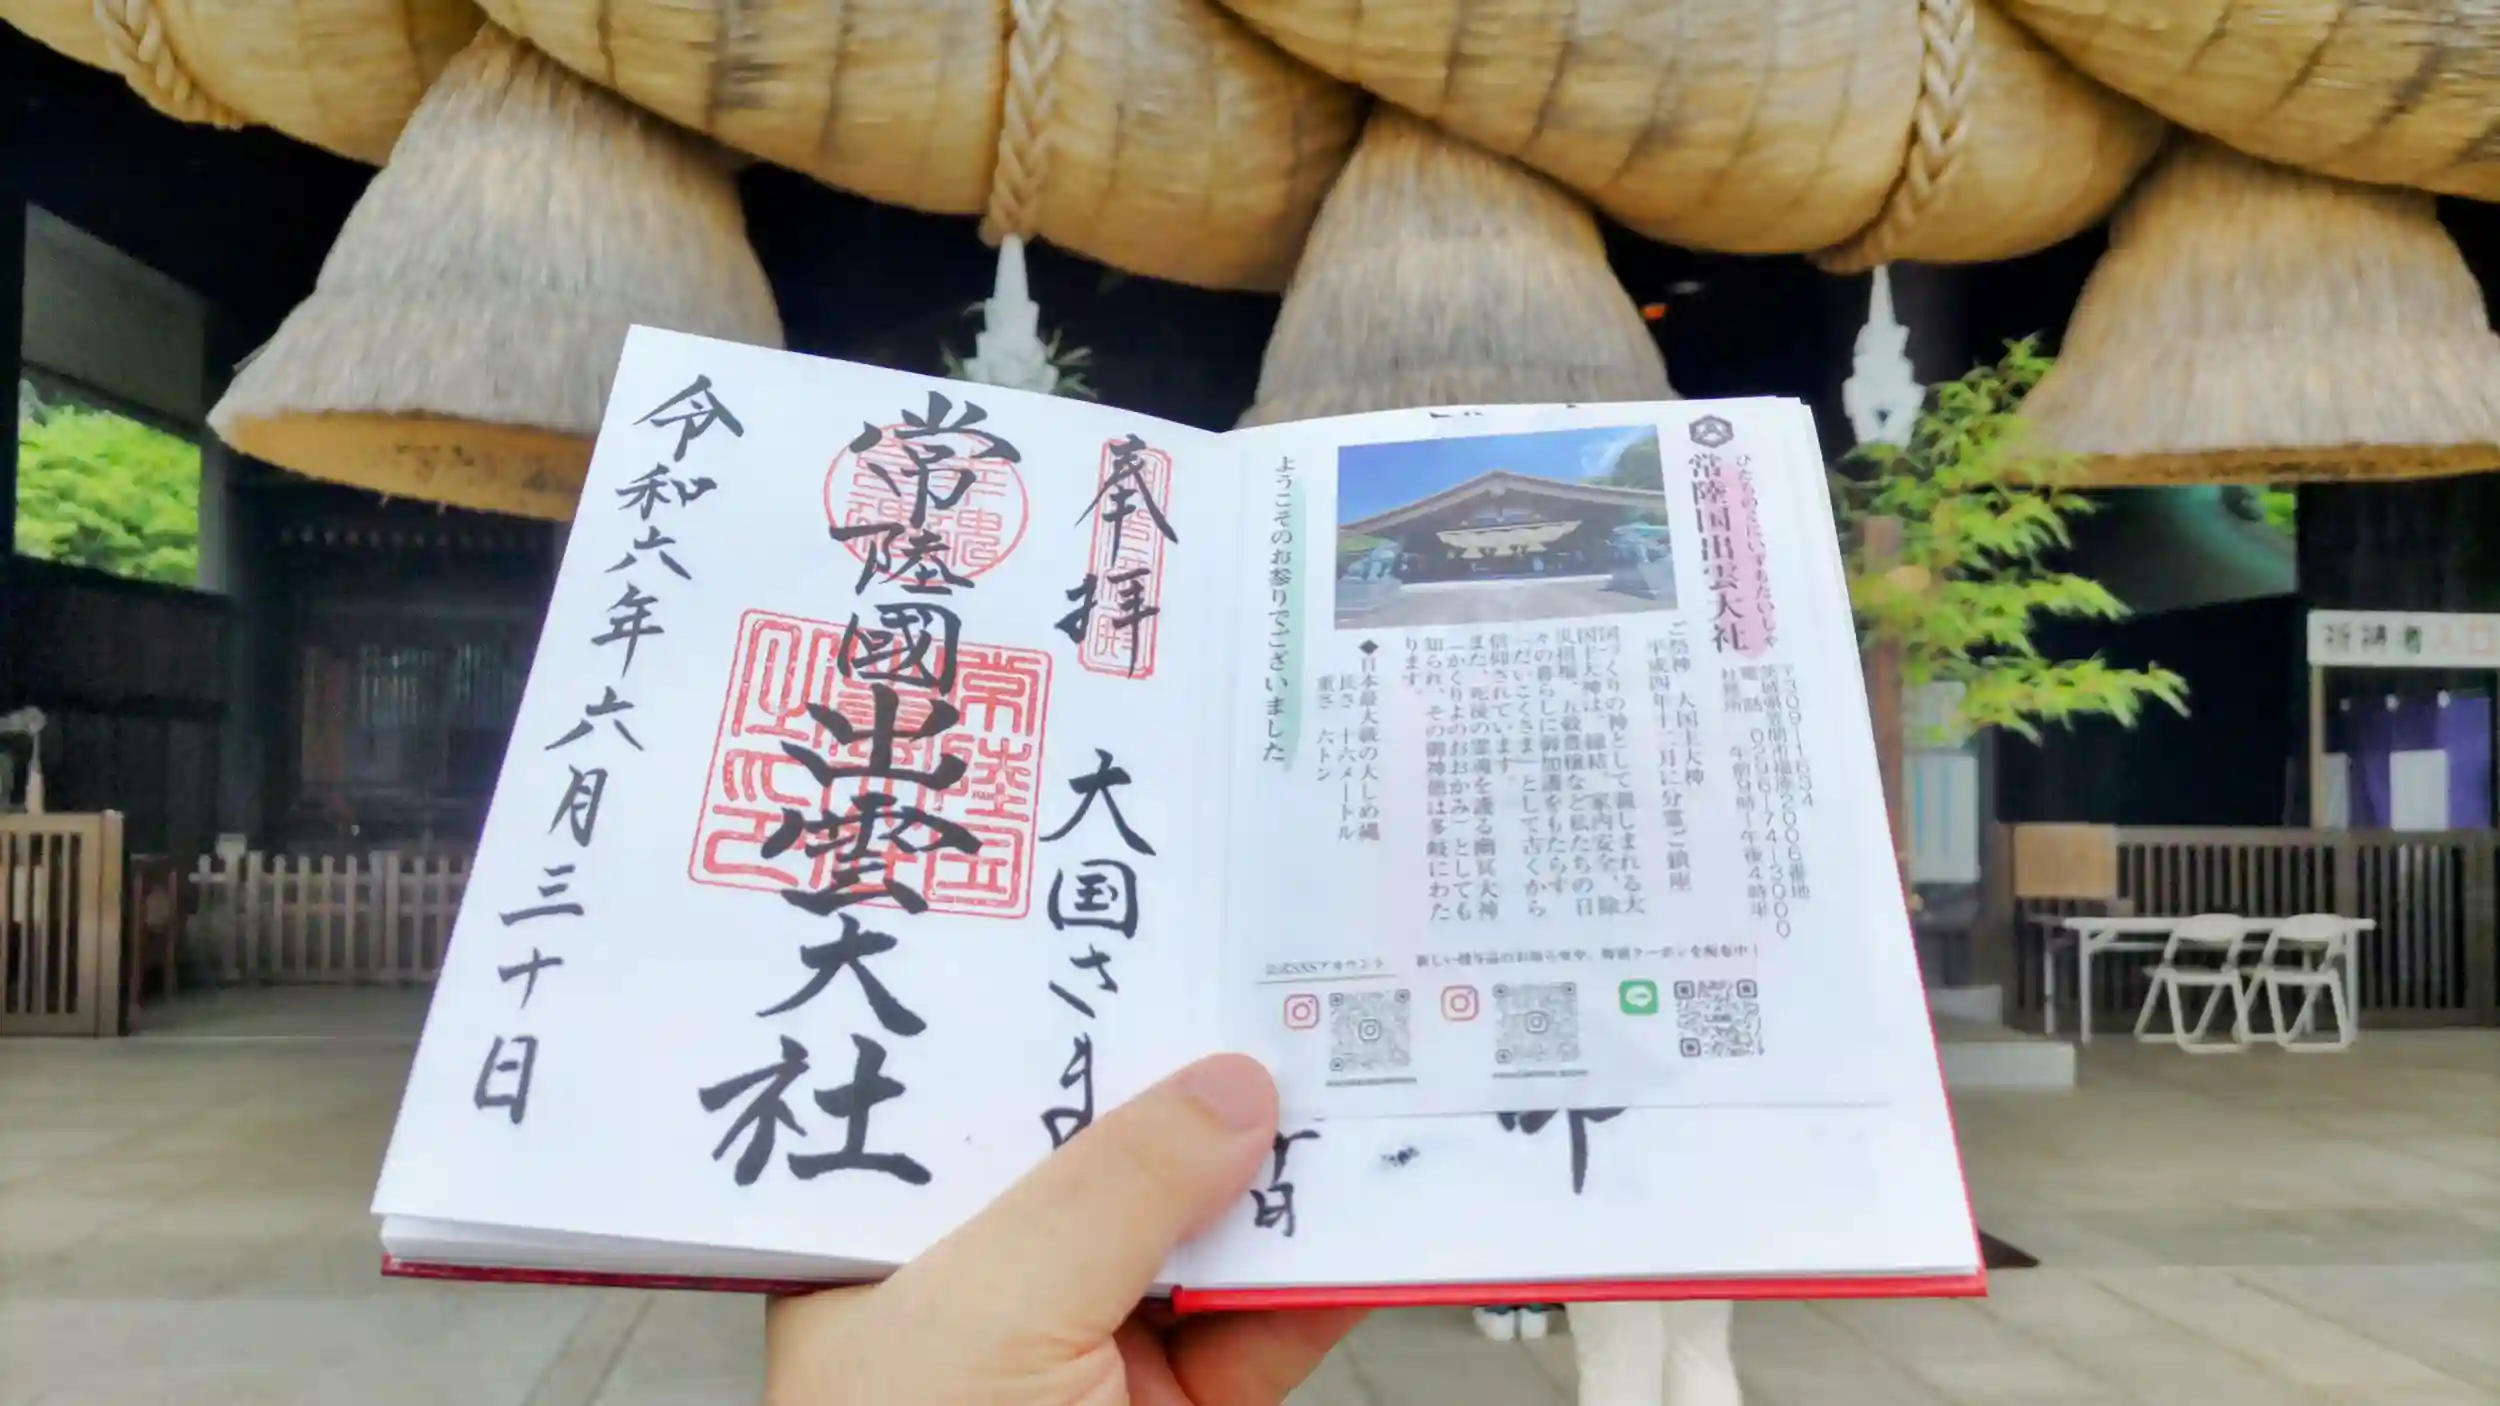 奉拝
大国さま
常陸國出雲大社
令和六年六月三十日
ひたちのくにいずもたいしゃ
常陸国出雲大社
〒309-1634
茨城県笠間市福原2006番地
電話 0296-74-3000
社務所 午前9時~午後4時半
ご祭神 大国主大神
平成四年十二月に分霊ご鎮座
国づくりの神として親しまれる大
国主大神は、縁結、家内安全、除
災招福、五穀豊穣など私たちの日
々の暮らしに御加護をもたらす
「だいこくさま」として古くから
信仰されています。
また、死後の霊魂を護る幽冥大神
「かくりよのおおかみ」としても
知られ、その御神徳は多岐にわた
ります。
◆日本最大級の大しめ縄
長さ 十六メートル
重さ 六トン
ようこそのお参りでございました
公式SNSアカウント
日
祈祷者入口